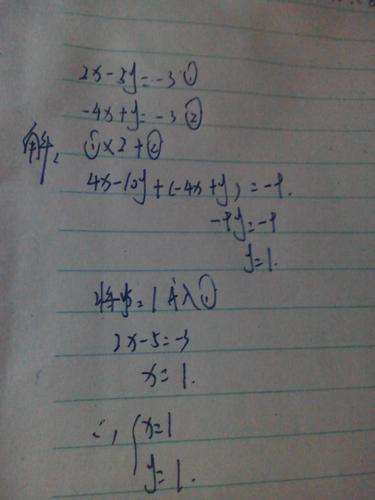 2x-5y=-3①
-4x+y=-3②
解: ①×2+②
4x-10y+(-4x+y)=-9.
-9y=-9
y=1.
将y=1代入①
2x-5=-3
x=1.
∴ { x=1
y=1.